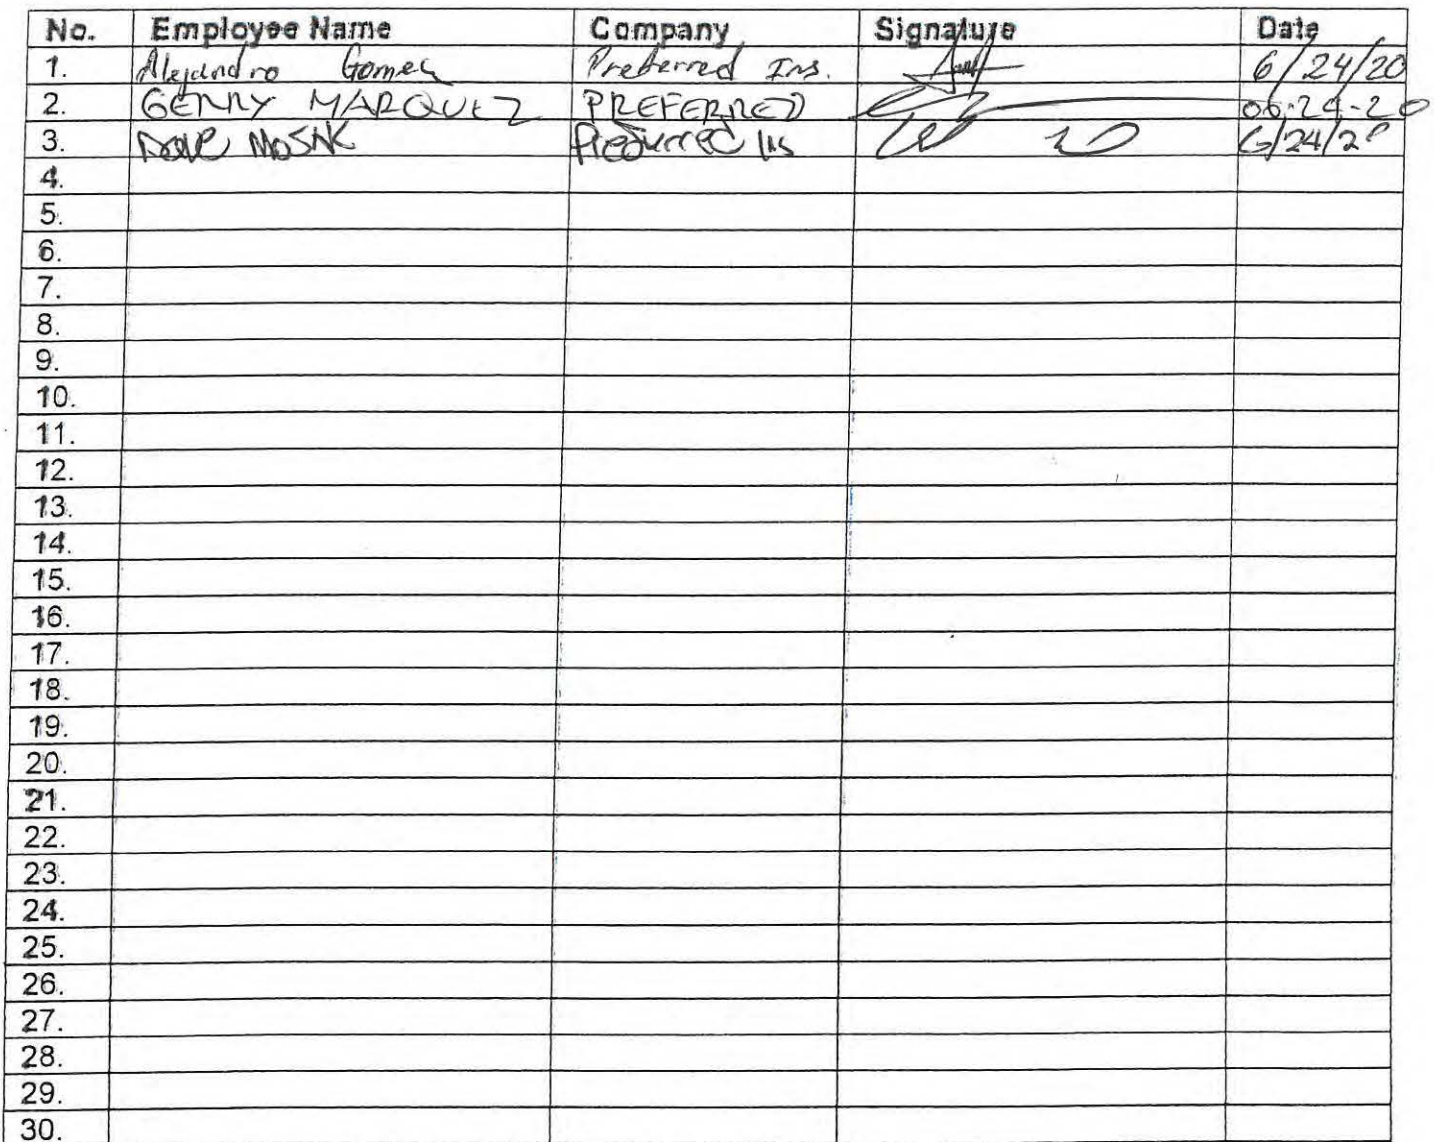 No. Employee Name Company Signature Date
1. Alejandro Gomez Preferred Ins. 6/24/20
2. GENRY MARQUEZ PREFERRED 06-24-20
3. Dave Preferred Ins 6/24/20
4.
5.
6.
7.
8.
9.
10.
11.
12.
13.
14.
15.
16.
17.
18.
19.
20.
21.
22.
23.
24.
25.
26.
27.
28.
29.
30.